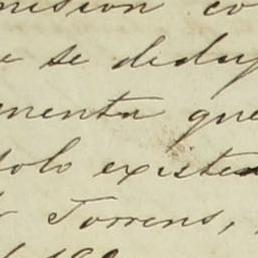 mision co
e se dedu
menta que
solo existen
Torrens,